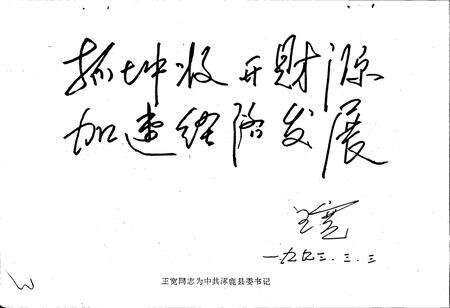 抓收开財源
加速经济发展
王宽
一九九三.三.三
王宽同志为中共涿鹿县委书记